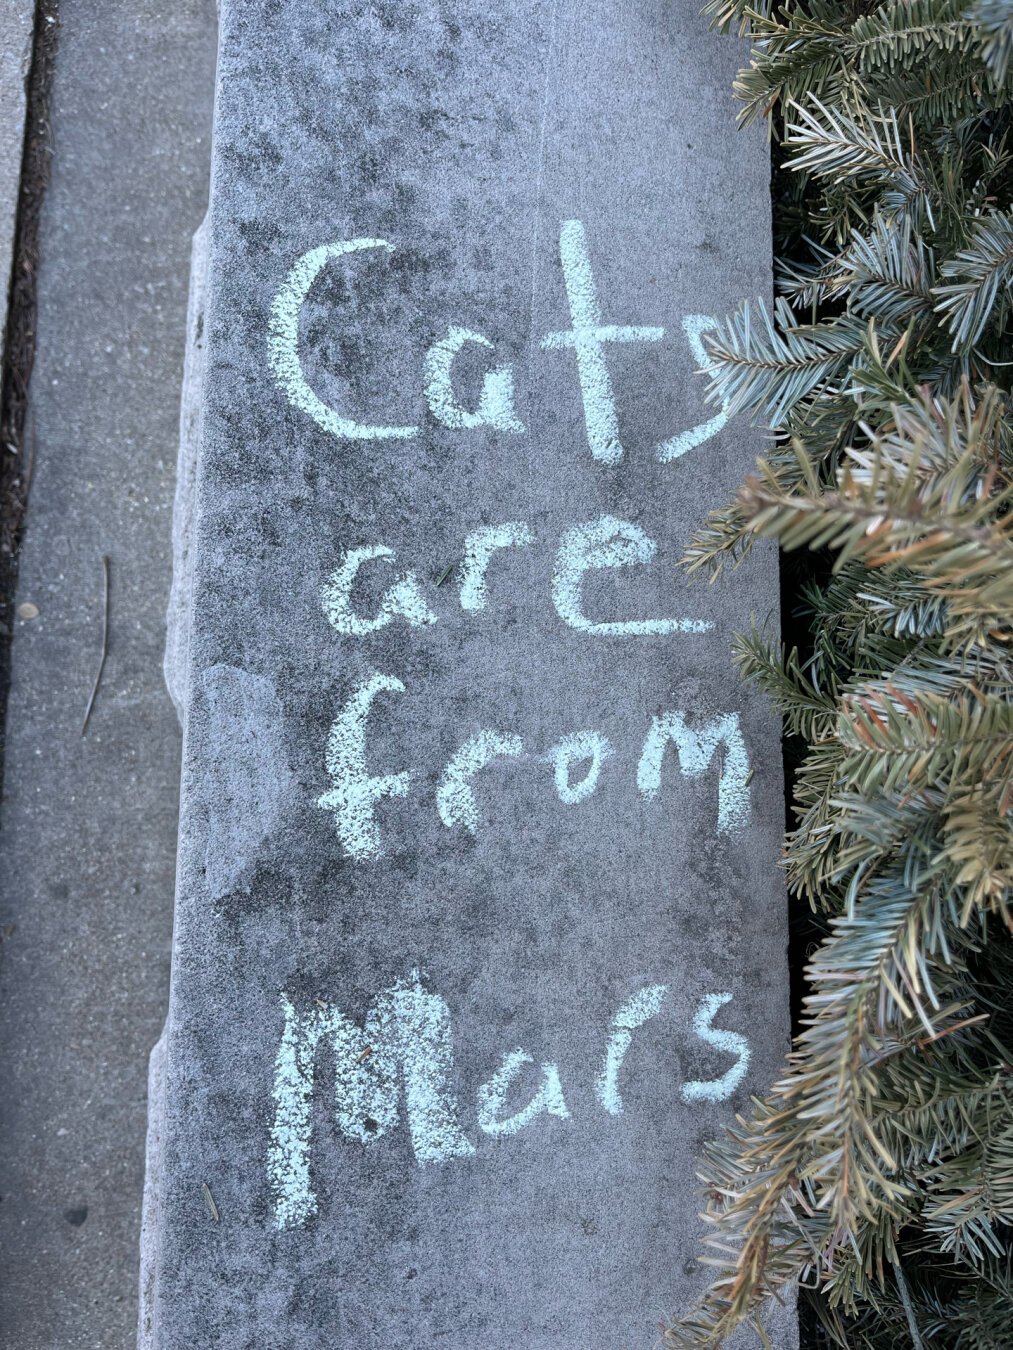 Cats
are
from
Mars